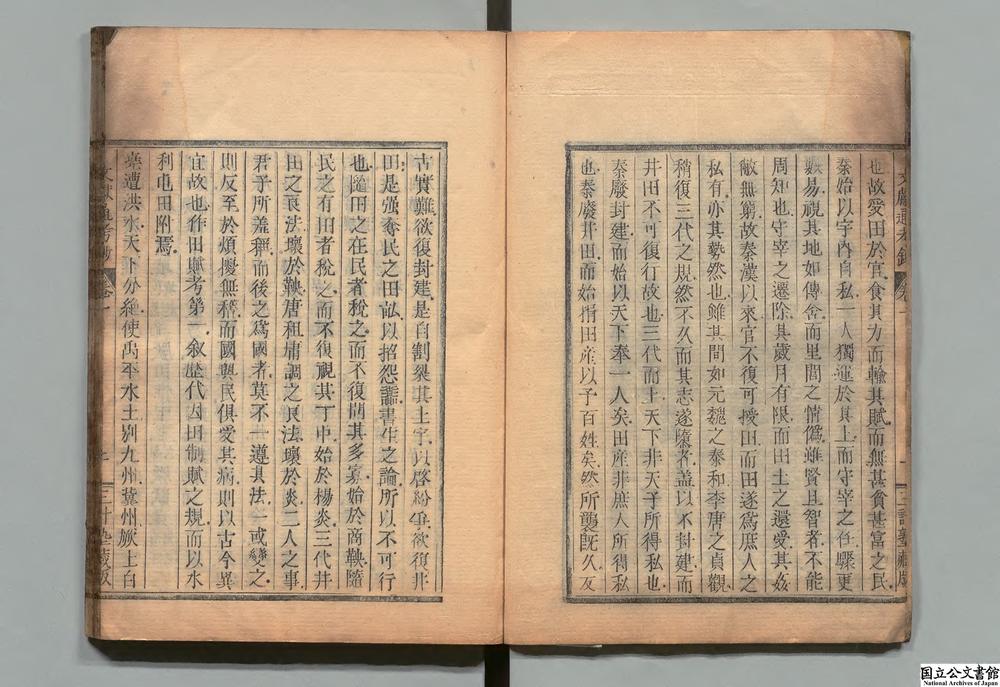 也故受田於官食其力而輸其賦而無甚貧甚富之民
秦始以宇內自私一人獨運於其上而守宰之任驟更
數易視其地如傳舍而里閭之情僞雖賢且智者不能
周知也守宰之遷除其歲月有限而田土之還受其姦
敝無窮故秦漢以來官不復可授田而田遂爲庶人之
私有亦其勢然也雖其間如元魏之泰和李唐之貞觀
稍復三代之規然不久而其志遂隳者蓋以不封建而
井田不可復行故也三代而上天下非天子所得私也
秦廢封建而始以天下奉一人矣田産非庶人所得私
也秦廢井田而始捐田産以予百姓矣然所襲旣久反
古實難欲復封建是自割裂其土宇以啓紛爭欲復井
田是强奪民之田畝以招怨讟書生之論所以不可行
也隨田之在民者稅之而不復問其多寡始於商鞅隨
民之有田者稅之而不復視其丁中始於楊炎三代井
田之良法壞於鞅唐租庸調之良法壞於炎二人之事
君子所羞稱而後之爲國者莫不一遵其法一或變之
則反至於煩擾無稽而國與民俱受其病則以古今異
宜故也作田賦考第一叙歷代因田制賦之規而以水
利屯田附焉
堯遭洪水天下分絕使禹平水土別九州冀州厥土白
文獻通考鈔 卷一
三計塾藏版
国立公文書館
National Archives of Japan